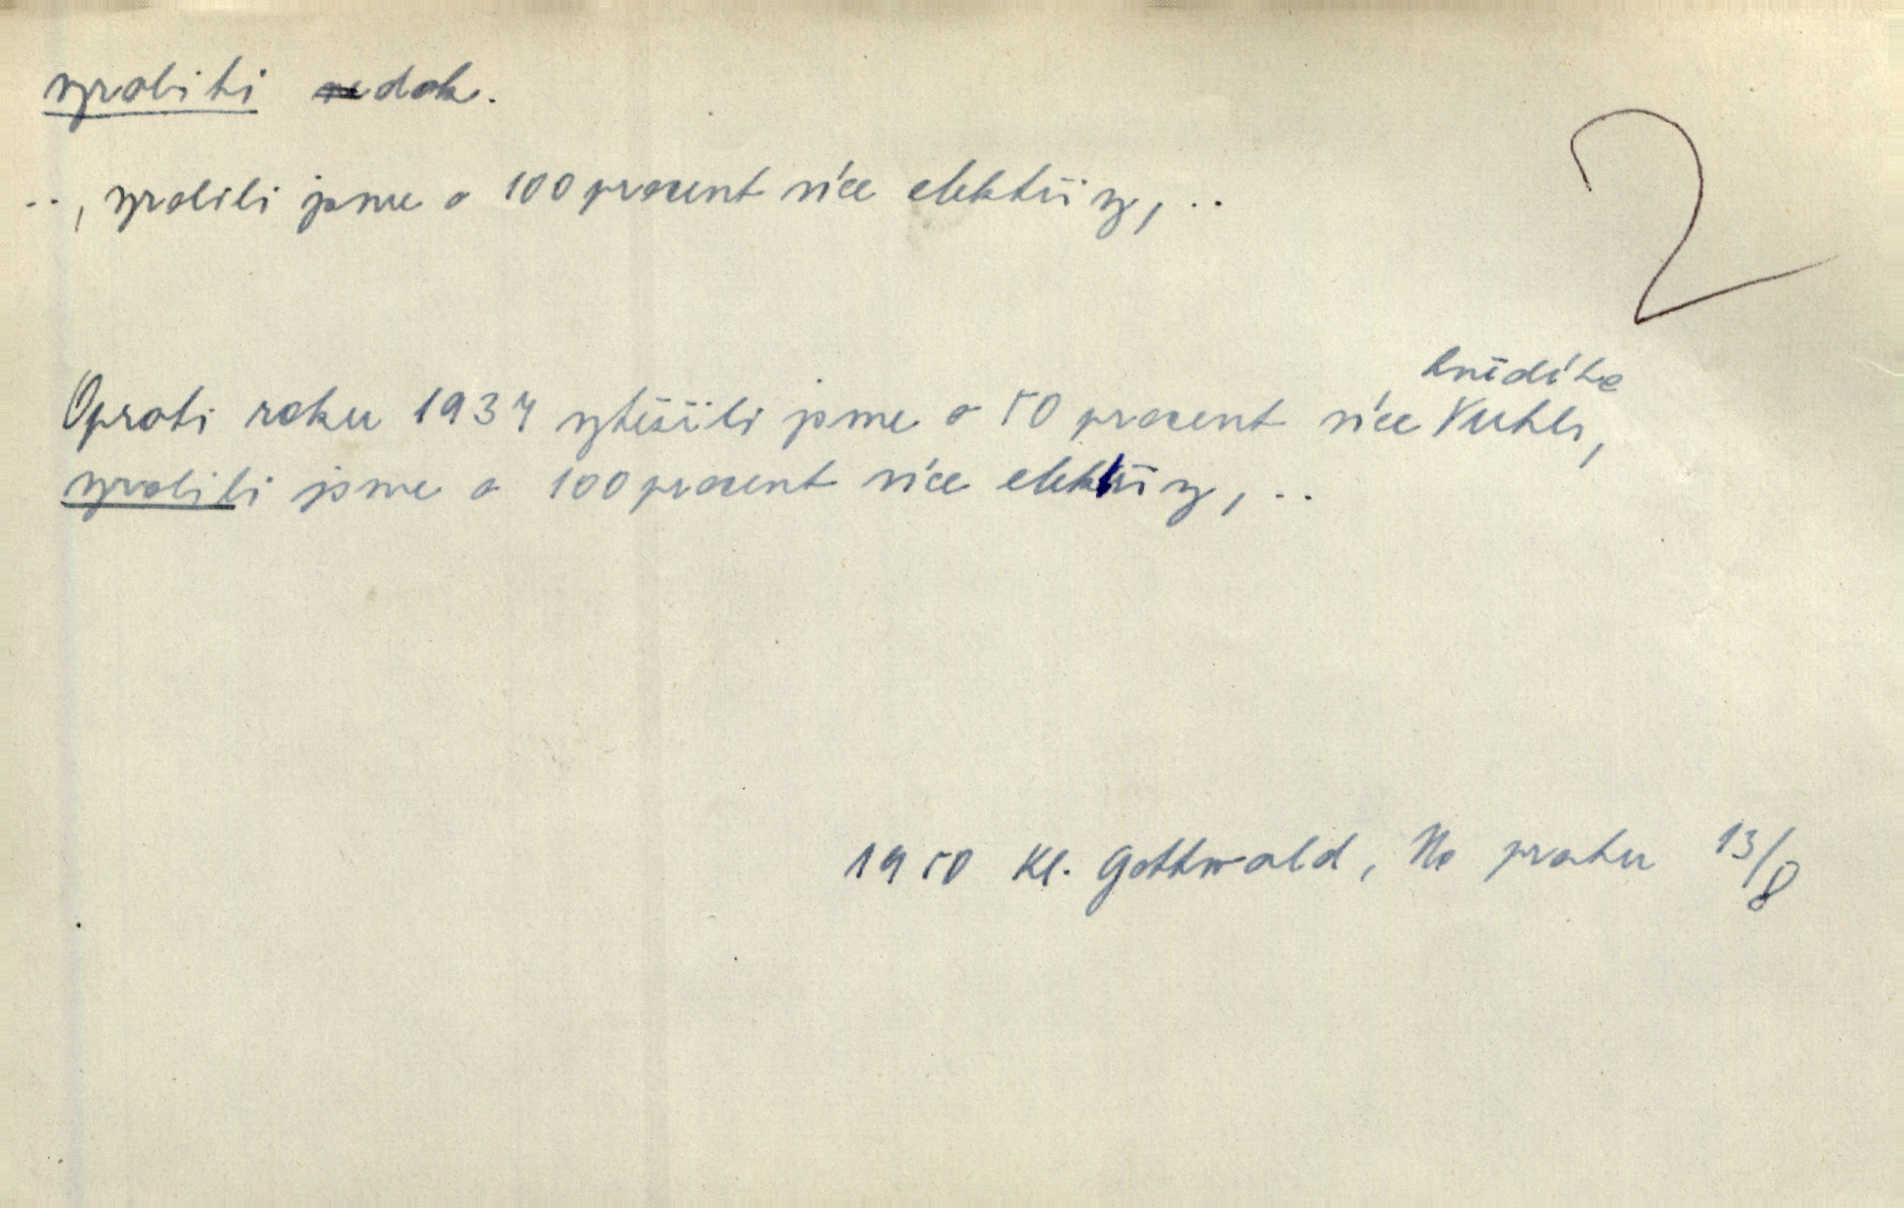 vyrobiti dok.
.., vyrobili jsme o 100 procent více elektřiny, ..
2
hnědého
Oproti roku 1937 vytěžili jsme o 50 procent více uhlí,
vyrobili jsme o 100 procent více elektřiny, ..
1950 Kl. Gottwald, Na prahu 13/8